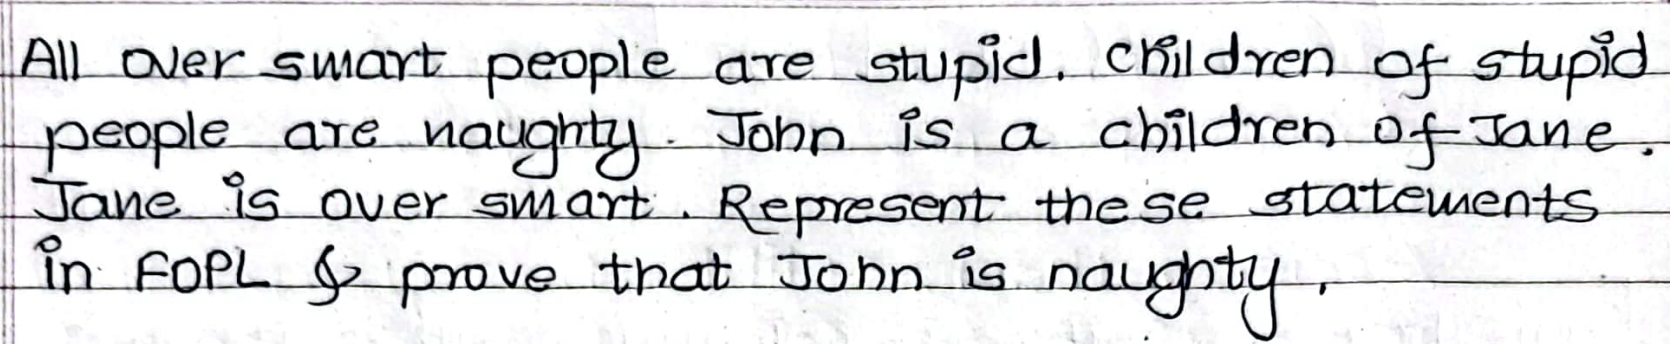 All over smart people are stupid. Children of stupid
people are naughty. John is a children of Jane.
Jane is over smart. Represent these statements
in FOPL & prove that John is naughty.